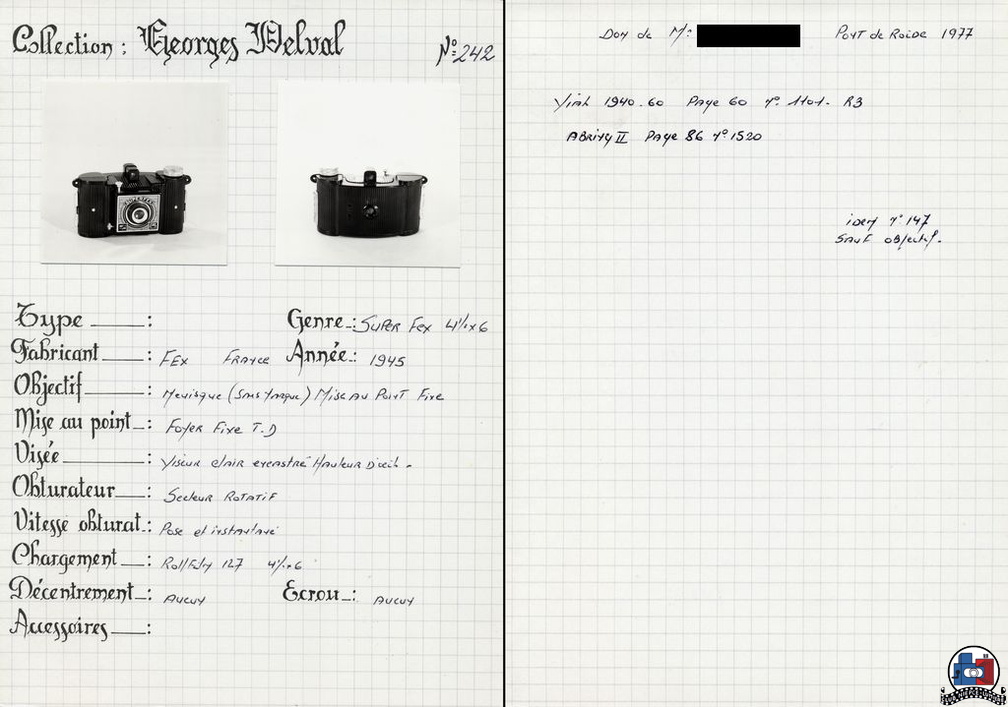 Collection : Georges Delval
N° 242
Type : Genre : Super Fex 4½x6
Fabricant : Fex France Année : 1945
Objectif : Menisque (Sans marque) Mise au Point Fixe
Mise au point : Foyer Fixe T.D
Visée : Viseur clair encastré Hauteur D'oeil.
Obturateur : Secteur Rotatif
Vitesse obturat. : Pose et instantané
Chargement : Roll Film 127 4½x6
Décentrement : Aucun Ecrou : Aucun
Accessoires :
Don de Mr Pont de Roide 1977
Vial 1940.60 Page 60 n° 1101. R3
Abring II Page 86 n° 1520
idem n° 147
Sauf objectif.